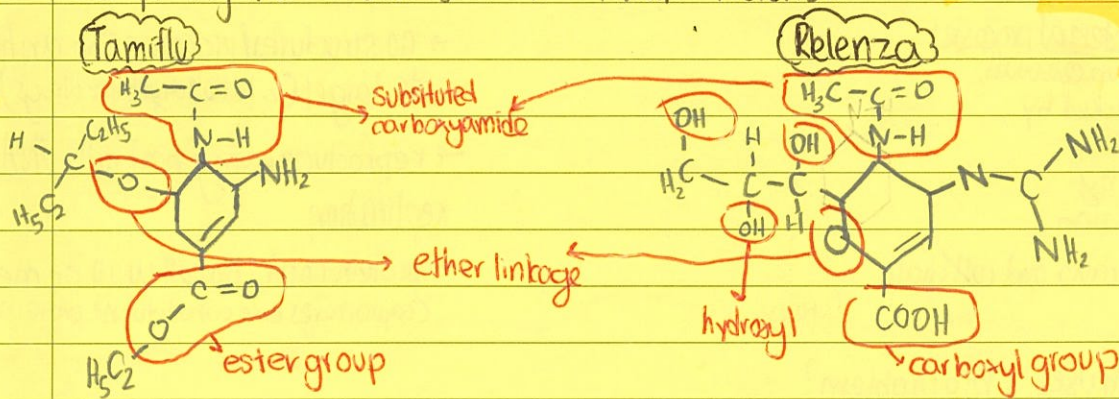 Tamiflu
Relenza
H3C-C=O
N-H
H
C2H5
C
O
H5C2
NH2
C=O
O
H5C2
substituted
carboxyamide
ether linkage
ester group
H3C-C=O
N-H
OH
H
OH
H2C-C-C
OH
H
O
N-C
NH2
NH2
COOH
hydroxyl
carboxyl group